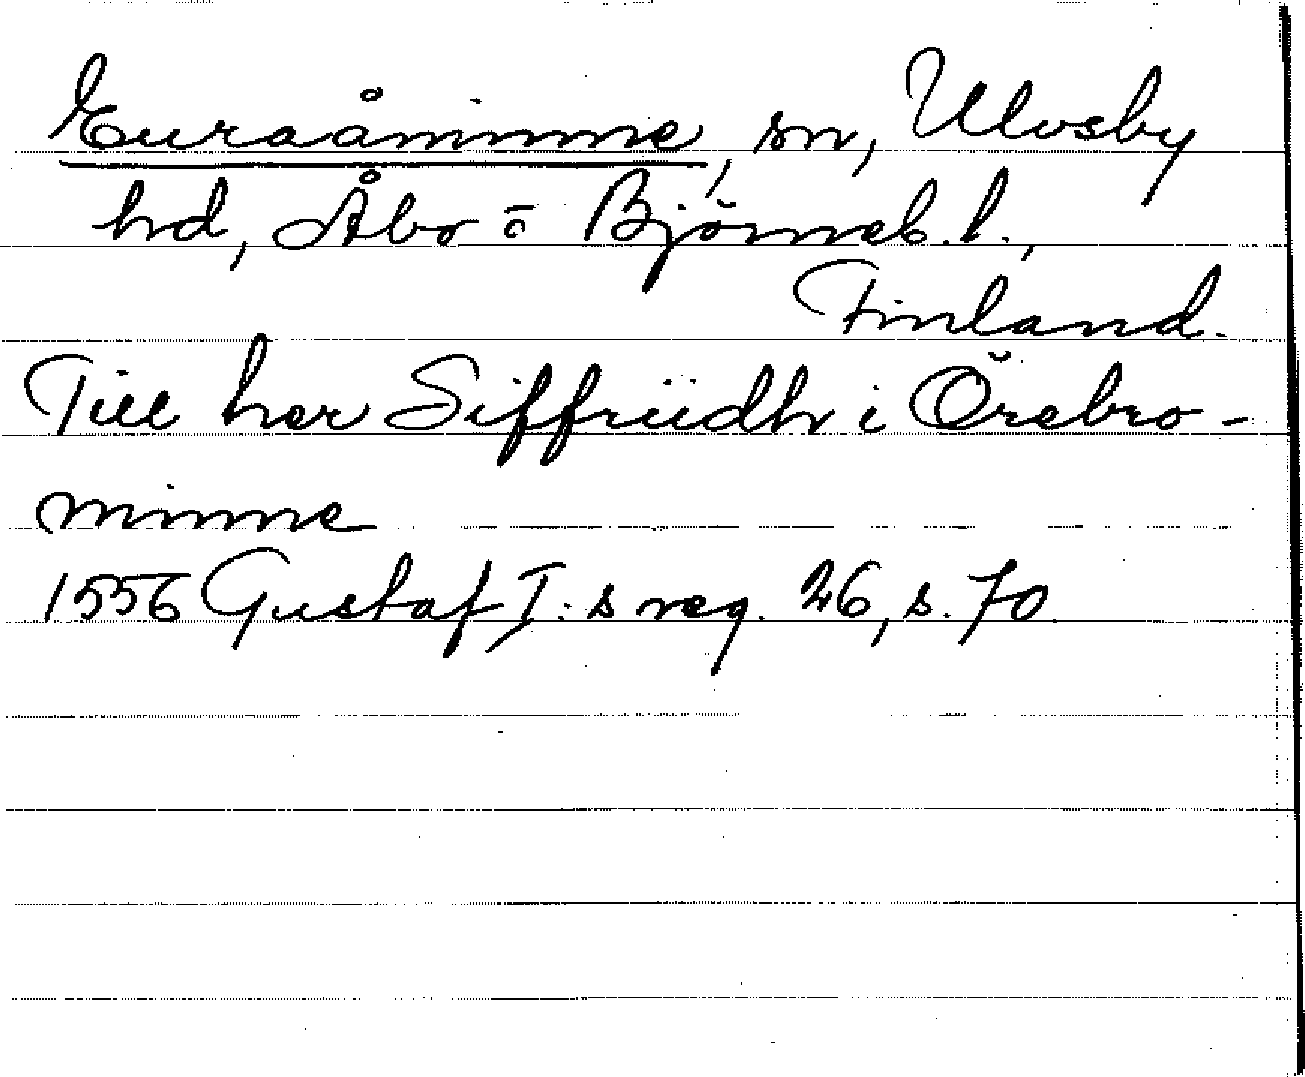 Euraåminne, sn, Ulvsby
hd, Åbo o Björneb. l.,
Finland.
Till her Siffriidh i Örebro-
minne
1556 Gustaf I:s reg. 26, s. 70.